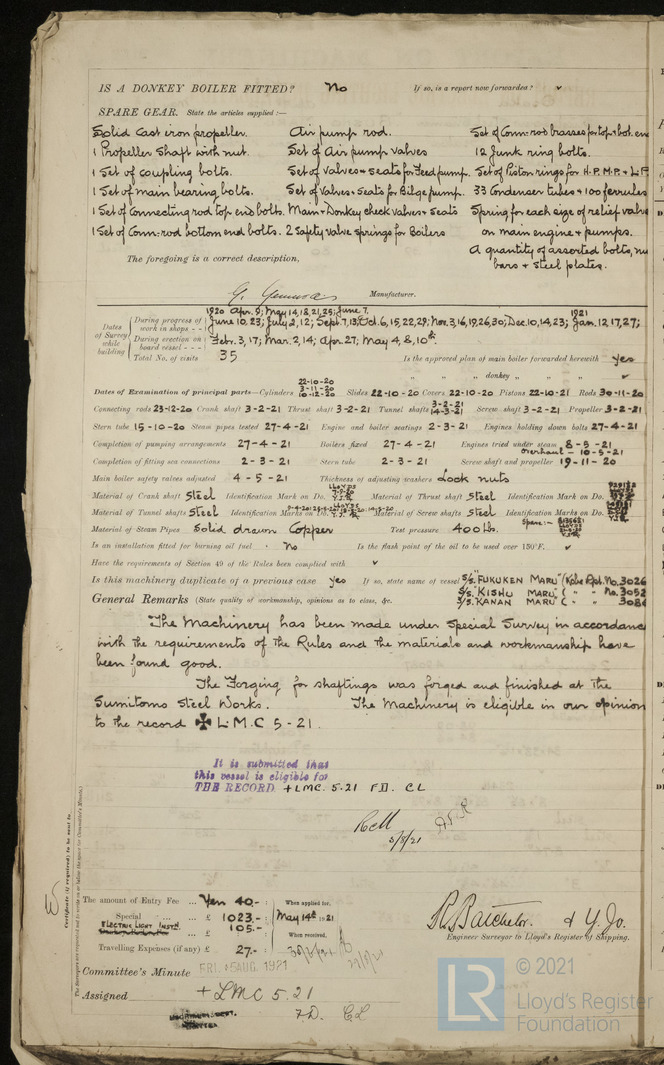 IS A DONKEY BOILER FITTED? No If so, is a report now forwarded? ✓
SPARE GEAR. State the articles supplied:—
Solid Cast iron propeller. Air pump rod. Set of Conn: rod brasses for top & bot. en
1 Propeller Shaft with nut. Set of Air pump valves 12 Junk ring bolts.
1 Set of coupling bolts. Set of valves & seats for Feed pump. Set of Piston rings for H.P. M.P. & L.P
1 Set of main bearing bolts. Set of Valves & Seats for Bilge pump. 33 Condenser tubes & 100 ferrules
1 Set of Connecting rod top end bolts. Main & Donkey check valves & Seats Spring for each size of relief valve
1 Set of Conn: rod bottom end bolts. 2 Safety valve springs for Boilers on main engine & pumps.
A quantity of assorted bolts, nu
bars & steel plates.
The foregoing is a correct description,
Manufacturer.
Dates of Survey while building
During progress of work in shops - - 1920 Apr. 9; May 14, 18, 21, 25; June 7,
June 10, 23; July 2, 12; Sept. 7, 13; Oct. 6, 15, 22, 29; Nov. 3, 16, 19, 26, 30; Dec. 10, 14, 23; 1921 Jan. 12, 17, 27;
During erection on board vessel - - - Febr. 3, 17; Mar. 2, 14; Apr. 27; May 4, 8, 10th
Total No. of visits 35 Is the approved plan of main boiler forwarded herewith Yes
" " " donkey " " " ✓
Dates of Examination of principal parts—Cylinders 22-10-20 3-11-20 10-12-20 Slides 22-10-20 Covers 22-10-20 Pistons 22-10-21 Rods 30-11-20
Connecting rods 23-12-20 Crank shaft 3-2-21 Thrust shaft 3-2-21 Tunnel shafts 3-2-21 14-3-21 Screw shaft 3-2-21 Propeller 3-2-21
Stern tube 15-10-20 Steam pipes tested 27-4-21 Engine and boiler seatings 2-3-21 Engines holding down bolts 27-4-21
Completion of pumping arrangements 27-4-21 Boilers fixed 27-4-21 Engines tried under steam 8-5-21
overhaul - 10-5-21
Completion of fitting sea connections 2-3-21 Stern tube 2-3-21 Screw shaft and propeller 19-11-20
Main boiler safety valves adjusted 4-5-21 Thickness of adjusting washers Lock nuts
Material of Crank shaft Steel Identification Mark on Do. Material of Thrust shaft Steel Identification Mark on Do.
Material of Tunnel shafts Steel Identification Marks on Do. Material of Screw shaft Steel Identification Marks on Do.
Spare:-
Material of Steam Pipes Solid drawn Copper Test pressure 400 lbs.
Is an installation fitted for burning oil fuel No Is the flash point of the oil to be used over 150°F. ✓
Have the requirements of Section 49 of the Rules been complied with ✓
Is this machinery duplicate of a previous case Yes If so, state name of vessel S/S. "FUKUKEN MARU" (Kobe Rpt. No. 3026
S/S. "KISHU MARU" ( " " No. 3052
S/S. "KANAN MARU" ( " " 308
General Remarks (State quality of workmanship, opinions as to class, &c.
The Machinery has been made under Special Survey in accordanc
with the requirements of the Rules and the materials and workmanship have
been found good.
The Forging for shaftings was forged and finished at the
Sumitomo Steel Works. The Machinery is eligible in our opinion
to the record ✠ L.M.C 5-21.
It is submitted that
this vessel is eligible for
THE RECORD + LMC. 5.21 F.D. CL
5/8/21
Certificate (if required) to be sent to
The Surveyors are requested not to write on or below the space for Committee's Minute.
The amount of Entry Fee ... Yen 40.- When applied for,
Special ... ... £ 1023.- May 14th 1921
ELECTRIC LIGHT INSTN. ... £ 105.- When received,
Travelling Expenses (if any) £ 27.-
R. Batchelor. & Y. Jo.
Engineer Surveyor to Lloyd's Register of Shipping.
Committee's Minute FRI. 5 AUG. 1921
Assigned + LMC 5.21
F.D. CL
LR
© 2021
Lloyd's Register
Foundation